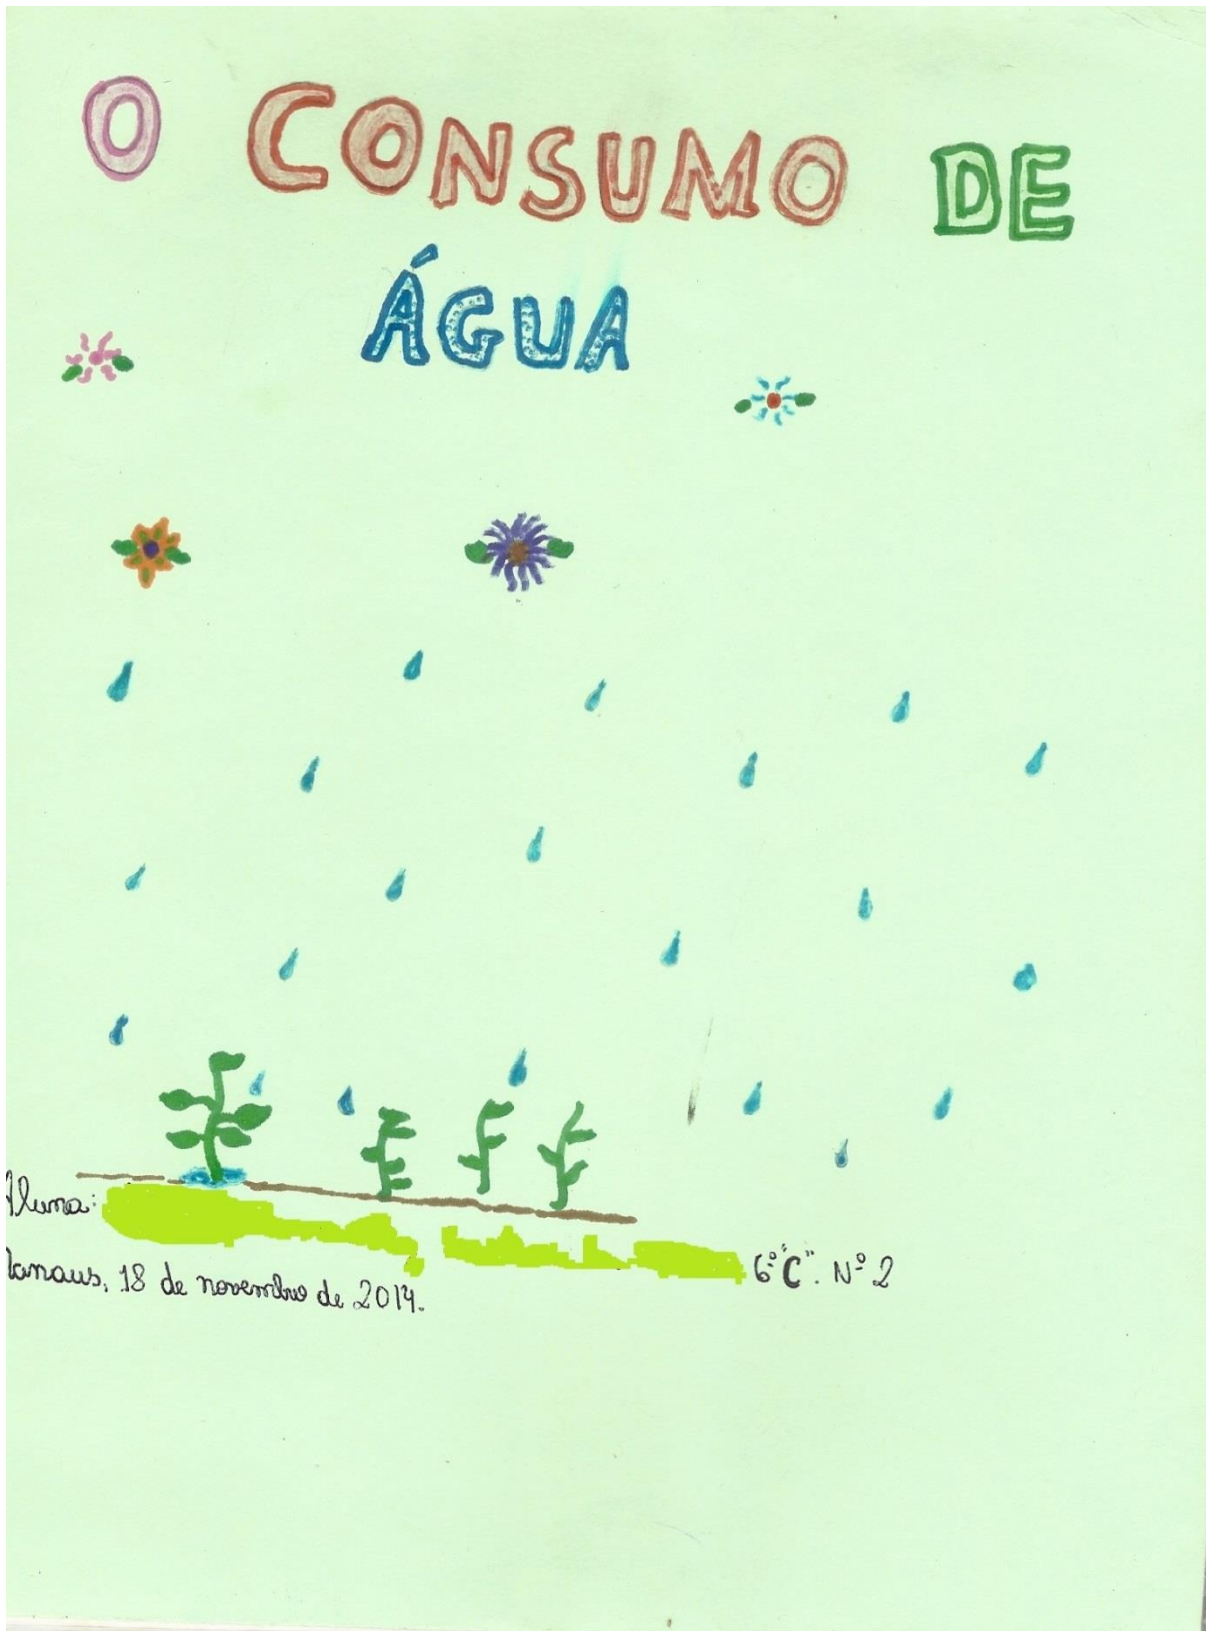 O CONSUMO DE
ÁGUA
Aluna:
6º "C". Nº 2
Manaus, 18 de novembro de 2014.